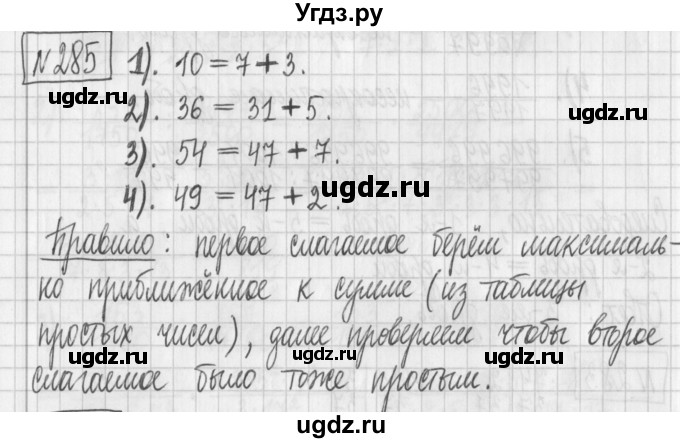 Угдз.ру
№285 1). 10 = 7 + 3.
ugdz.ru ugdz.ru
2). 36 = 31 + 5.
3). 54 = 47 + 7.
ugdz.ru
4). 49 = 47 + 2.
Правило: первое слагаемое берём максималь-
ugdz.ru ugdz.ru
но приближённое к сумме (из таблицы
простых чисел), далее проверяем чтобы второе
ugdz.ru ugdz.ru ugdz.ru
слагаемое было тоже простым.
ugdz.ru
Угдз.ру